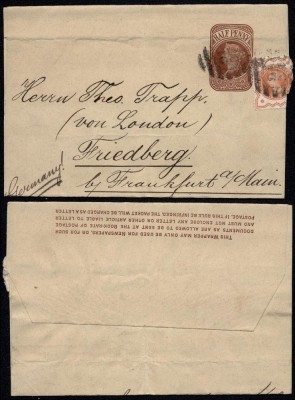 HALFPENNY
Herrn Theo. Trapp.
(von London)
Friedberg.
Germany!
by Frankfurt a/Main.
THIS WRAPPER MAY ONLY BE USED FOR NEWSPAPERS, OR FOR SUCH
DOCUMENTS AS ARE ALLOWED TO BE SENT AT THE BOOK-RATE OF POSTAGE,
AND MUST NOT ENCLOSE ANY LETTER OR OTHER ARTICLE LIABLE TO LETTER
POSTAGE. IF THIS RULE BE INFRINGED, THE PACKET WILL BE CHARGED AS A LETTER.